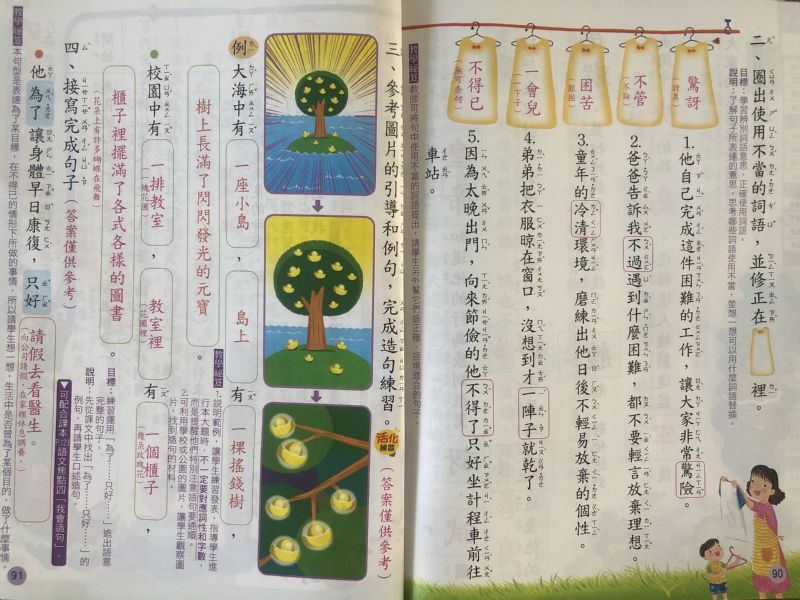 二、圈出使用不當的詞語，並修正在 裡。
目標：學習辨別詞語意思，正確使用詞語。
說明：了解句子所表達的意思，思考哪些詞語使用不當，並想一想可以用什麼詞語替換。
驚訝
(訝異)
不管
(不論)
困苦
(艱困)
一會兒
(下子)
不得已
(無可奈何)
1.他自己完成這件困難的工作，讓大家非常驚險。
2.爸爸告訴我不過遇到什麼困難，都不要輕言放棄理想。
3.童年的冷清環境，磨練出他日後不輕易放棄的個性。
4.弟弟把衣服晾在窗口，沒想到才一陣子就乾了。
5.因為太晚出門，向來節儉的他不得了只好坐計程車前往
車站。
教學祕笈
教師可將句中使用不當的詞語提出，請學生另外幫它們造正確、語境適合的句子。
90
三、參考圖片的引導和例句，完成造句練習。
活化練習
(答案僅供參考)
例
大海中有一座小島，島上有一棵搖錢樹，
樹上長滿了閃閃發光的元寶。
教學祕笈
1.說明範例，讓學生練習發表，指導學生進
行本大題時，不一定要對應詞性和字數，
而是提醒他們特別注意語句要通順。
2.可利用學校或公園的圖片，讓學生觀察圖
片，找到造句的材料。
校園中有一排教室，教室裡有一個櫃子，
(一塊花園)
(花園裡)
(幾朵玫瑰花)
櫃子裡擺滿了各式各樣的圖書。
(花朵上有許多蝴蝶在飛舞)
四、接寫完成句子(答案僅供參考)
目標：練習運用「為了……只好……」造出語意
完整的句子。
說明：先從課文中找出「為了……只好……」的
例句，再請學生口述造句。
▼可配合課本P.123語文焦點四「我會造句」。
他為了讓身體早日康復，只好請假去看醫生。
(向公司請假，在家裡休息調養。)
教學祕笈
本句型是表達為了某目標，在不得已的情形下所做的事情，所以請學生想一想，生活中是否曾為了某個目的，做了什麼事情。
91